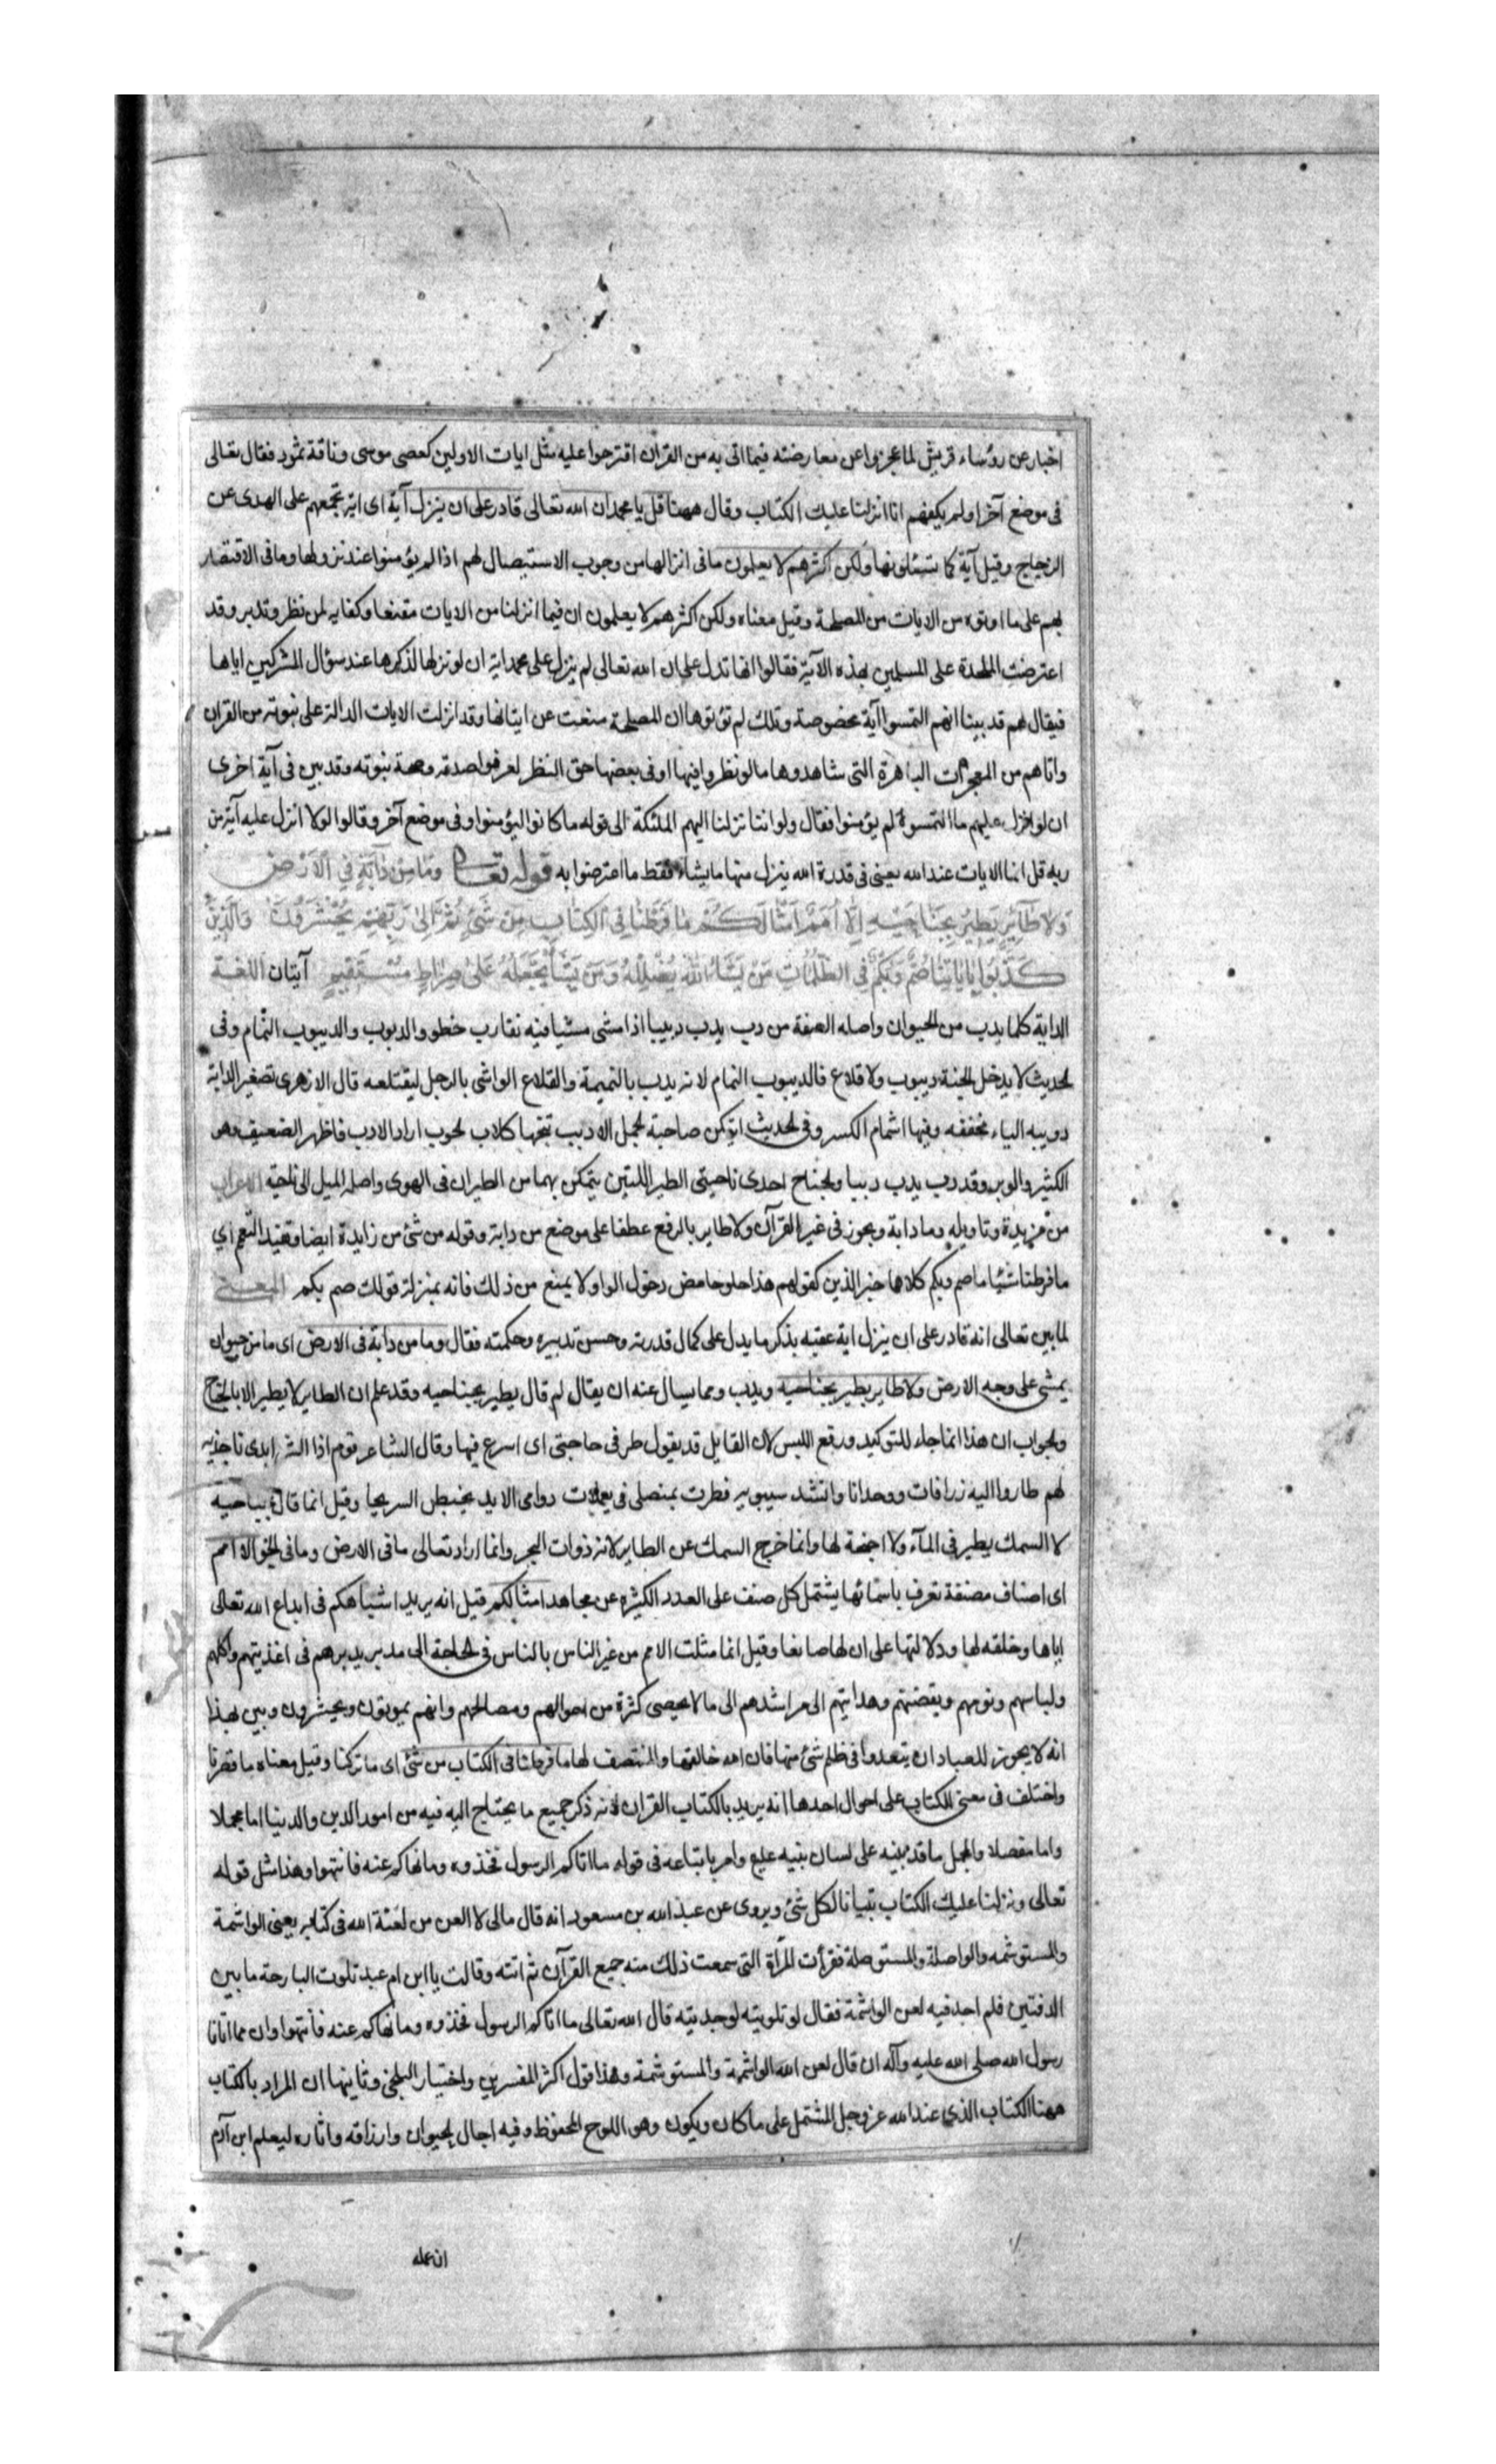 اخبار عن رؤساء قريش لما عجزوا عن معارضته فيما اتى به من القران اقترحوا عليه مثل ايات الاولين كعصى موسى وناقة ثمود فقال تعالى
فى موضع آخر اولم يكفهم انا انزلنا عليك الكتاب وقال ههنا قل يا محمد ان الله تعالى قادر على ان ينزل آية اى اية تجمعهم على الهدى عن
الزجاج وقيل آية كما يسئلونها ولكن اكثرهم لا يعلمون ما فى انزالها من وجوب الاستيصال لهم اذا لم يؤمنوا عند نزولها وما فى الاقتصار
بهم على ما اوتوه من الايات من المصلحة وقيل معناه ولكن اكثرهم لا يعلمون ان فيما انزلنا من الايات مقنعا وكفايه لمن نظر وتدبر وقد
اعترضت الملحدة على المسلمين بهذه الآية فقالوا انها تدل على ان الله تعالى لم ينزل على محمد اية ان لو نزلها لذكرها عند سؤال المشركين اياها
فيقال لهم قد بينا انهم التمسوا آية مخصوصة وتلك لم تؤتوها ان المصلحة منعت عن ايتانها وقد انزلت الايات الدالة على نبوته من القران
واتاهم من المعجزات الباهرة التى شاهدوها ما لو نظروا فيها او فى بعضها حق النظر لعرفوا صدقه وصحة نبوته وقد بين فى آية اخرى
ان لو انزل عليهم ما التمسوه لم يؤمنوا فقال ولو اننا نزلنا اليهم الملئكة الى قوله ما كانوا ليؤمنوا وفى موضع آخر وقالوا لولا انزل عليه آية من
ربه قل انما الايات عند الله يعنى فى قدرة الله ينزل منها ما يشاء فسقط ما اعترضوا به قوله تعالى وَمَا مِنْ دَآبَّةٍ فِي الْاَرْضِ
وَلَا طَآئِرٍ يَطِيرُ بِجَنَاحَيْهِ اِلَّا اُمَمٌ اَمْثَالُكُمْ مَا فَرَّطْنَا فِي الْكِتَابِ مِنْ شَيْءٍ ثُمَّ اِلَىٰ رَبِّهِمْ يُحْشَرُونَ وَالَّذِينَ
كَذَّبُوا بِاٰيَاتِنَا صُمٌّ وَبُكْمٌ فِي الظُّلُمَاتِ مَنْ يَشَاءِ اللّٰهُ يُضْلِلْهُ وَمَنْ يَشَأْ يَجْعَلْهُ عَلَىٰ صِرَاطٍ مُسْتَقِيمٍ آيتان اللغة
الدابة كلما يدب من الحيوان واصله الصفة من دب يدب دبيبا اذا مشى مشيا فيه تقارب خطو والدبوب والديبوب النمام وفى
الحديث لا يدخل الجنة ديبوب ولا قلاع فالديبوب النمام لانه يدب بالنميمة والقلاع الواشى بالرجل ليقتلعه قال الازهرى تصغير الدابة
دويبه الياء مخففه وفيها اشمام الكسر وفى الحديث ايتكن صاحبة الجمل الادبب تنبحها كلاب الحوب اراد الادب فاظهر الضعيف وهو
الكثير والوبر وقد دب يدب دبيبا والجناح احدى ناحيتى الطير اللتين يتمكن بهما من الطيران فى الهوى واصله الميل الى ناحية الاعراب
من مزيدة وتاويله وما دابة ويجوز فى غير القرآن ولا طاير بالرفع عطفا على موضع من دابة وقوله من شئ من زايدة ايضا وتفيد التعم اي
ما فرطنا شيئا ما صم وبكم كلاهما خبر الذين كقولهم هذا حلو حامض ودخول الواو لا يمنع من ذلك فانه بمنزلة قولك صم بكم المعنى
لما بين تعالى انه قادر على ان ينزل اية عقبه بذكر ما يدل على كمال قدرته وحسن تدبيره وحكمته فقال وما من دابة فى الارض اى ما من حيوان
يمشى على وجه الارض ولا طاير يطير بجناحيه ويدب ومما يسال عنه ان يقال لم قال يطير بجناحيه وقد علم ان الطاير لا يطير الا بالجناح
والجواب ان هذا انما جاء للتوكيد ورفع اللبس لان القايل قد يقول طر فى حاجتى اى اسرع فيها وقال الشاعر قوم اذا الشر ابدى ناجذيه
لهم طاروا اليه زرافات ووحدانا وانشد سيبويه فطرت بمنصلى فى يعملات دوامى الايد يخبطن السريحا وقيل انما قال بجناحيه
لا السمك يطير فى المآء ولا اجنحة لها وانما خرج السمك عن الطاير لانه ذوات البحر وانما اراد تعالى ما فى الارض وما فى الجو الا امم
اى اصناف مصنفة تعرف باسمائها يشتمل كل صنف على العدد الكثير عن مجاهد امثالكم قيل انه يريد اشباهكم فى ابداع الله تعالى
اياها وخلقه لها ودلالتها على ان لها صانعا وقيل انما مثلت الامم من غير الناس بالناس فى الحاجة الى مدبر يدبرهم فى اغذيتهم واكلهم
ولباسهم ونومهم ويقضتهم وهدايتهم الى مراشدهم الى ما لا يحصى كثرة من احوالهم ومصالحهم وانهم يموتون ويحشرون وبين لهذا
انه لا يجوز للعباد ان يتعدوا فى ظلم شئ منها فان الله خالقها والمنتصف لها ما فرطنا فى الكتاب من شئ اى ما تركنا وقيل معناه ما قصرنا
واختلف فى معنى الكتاب على احوال احدها انه يريد بالكتاب القران لانه ذكر جميع ما يحتاج اليه فيه من امور الدين والدنيا اما مجملا
واما مفصلا والمجمل ما قد بينه على لسان نبيه عليع وامر باتباعه فى قوله ما اتاكم الرسول فخذوه وما نهاكم عنه فانتهوا وهذا مثل قوله
تعالى ونزلنا عليك الكتاب تبيانا لكل شئ ويروى عن عبد الله بن مسعود انه قال مالى لا العن من لعنة الله فى كتابه يعنى الواشمة
والمستوشمه والواصلة والمستوصلة فقرأت المرأة التى سمعت ذلك منه جميع القرآن ثم اتته وقالت يا ابن ام عبد تلوت البارحة ما بين
الدفتين فلم اجد فيه لعن الواشمة فقال لو تلوتيه لوجدتيه قال الله تعالى ما اتاكم الرسول فخذوه وما نهاكم عنه فانتهوا وان مما اتانا
رسول الله صلى الله عليه وآله ان قال لعن الله الواشمة والمستوشمة وهذا قول اكثر المفسرين واختيار البلخى وثانيها ان المراد بالكتاب
ههنا الكتاب الذي عند الله عز وجل المشتمل على ما كان ويكون وهو اللوح المحفوظ وفيه اجال الحيوان وارزاقه واثاره ليعلم ابن آدم
ان عمله